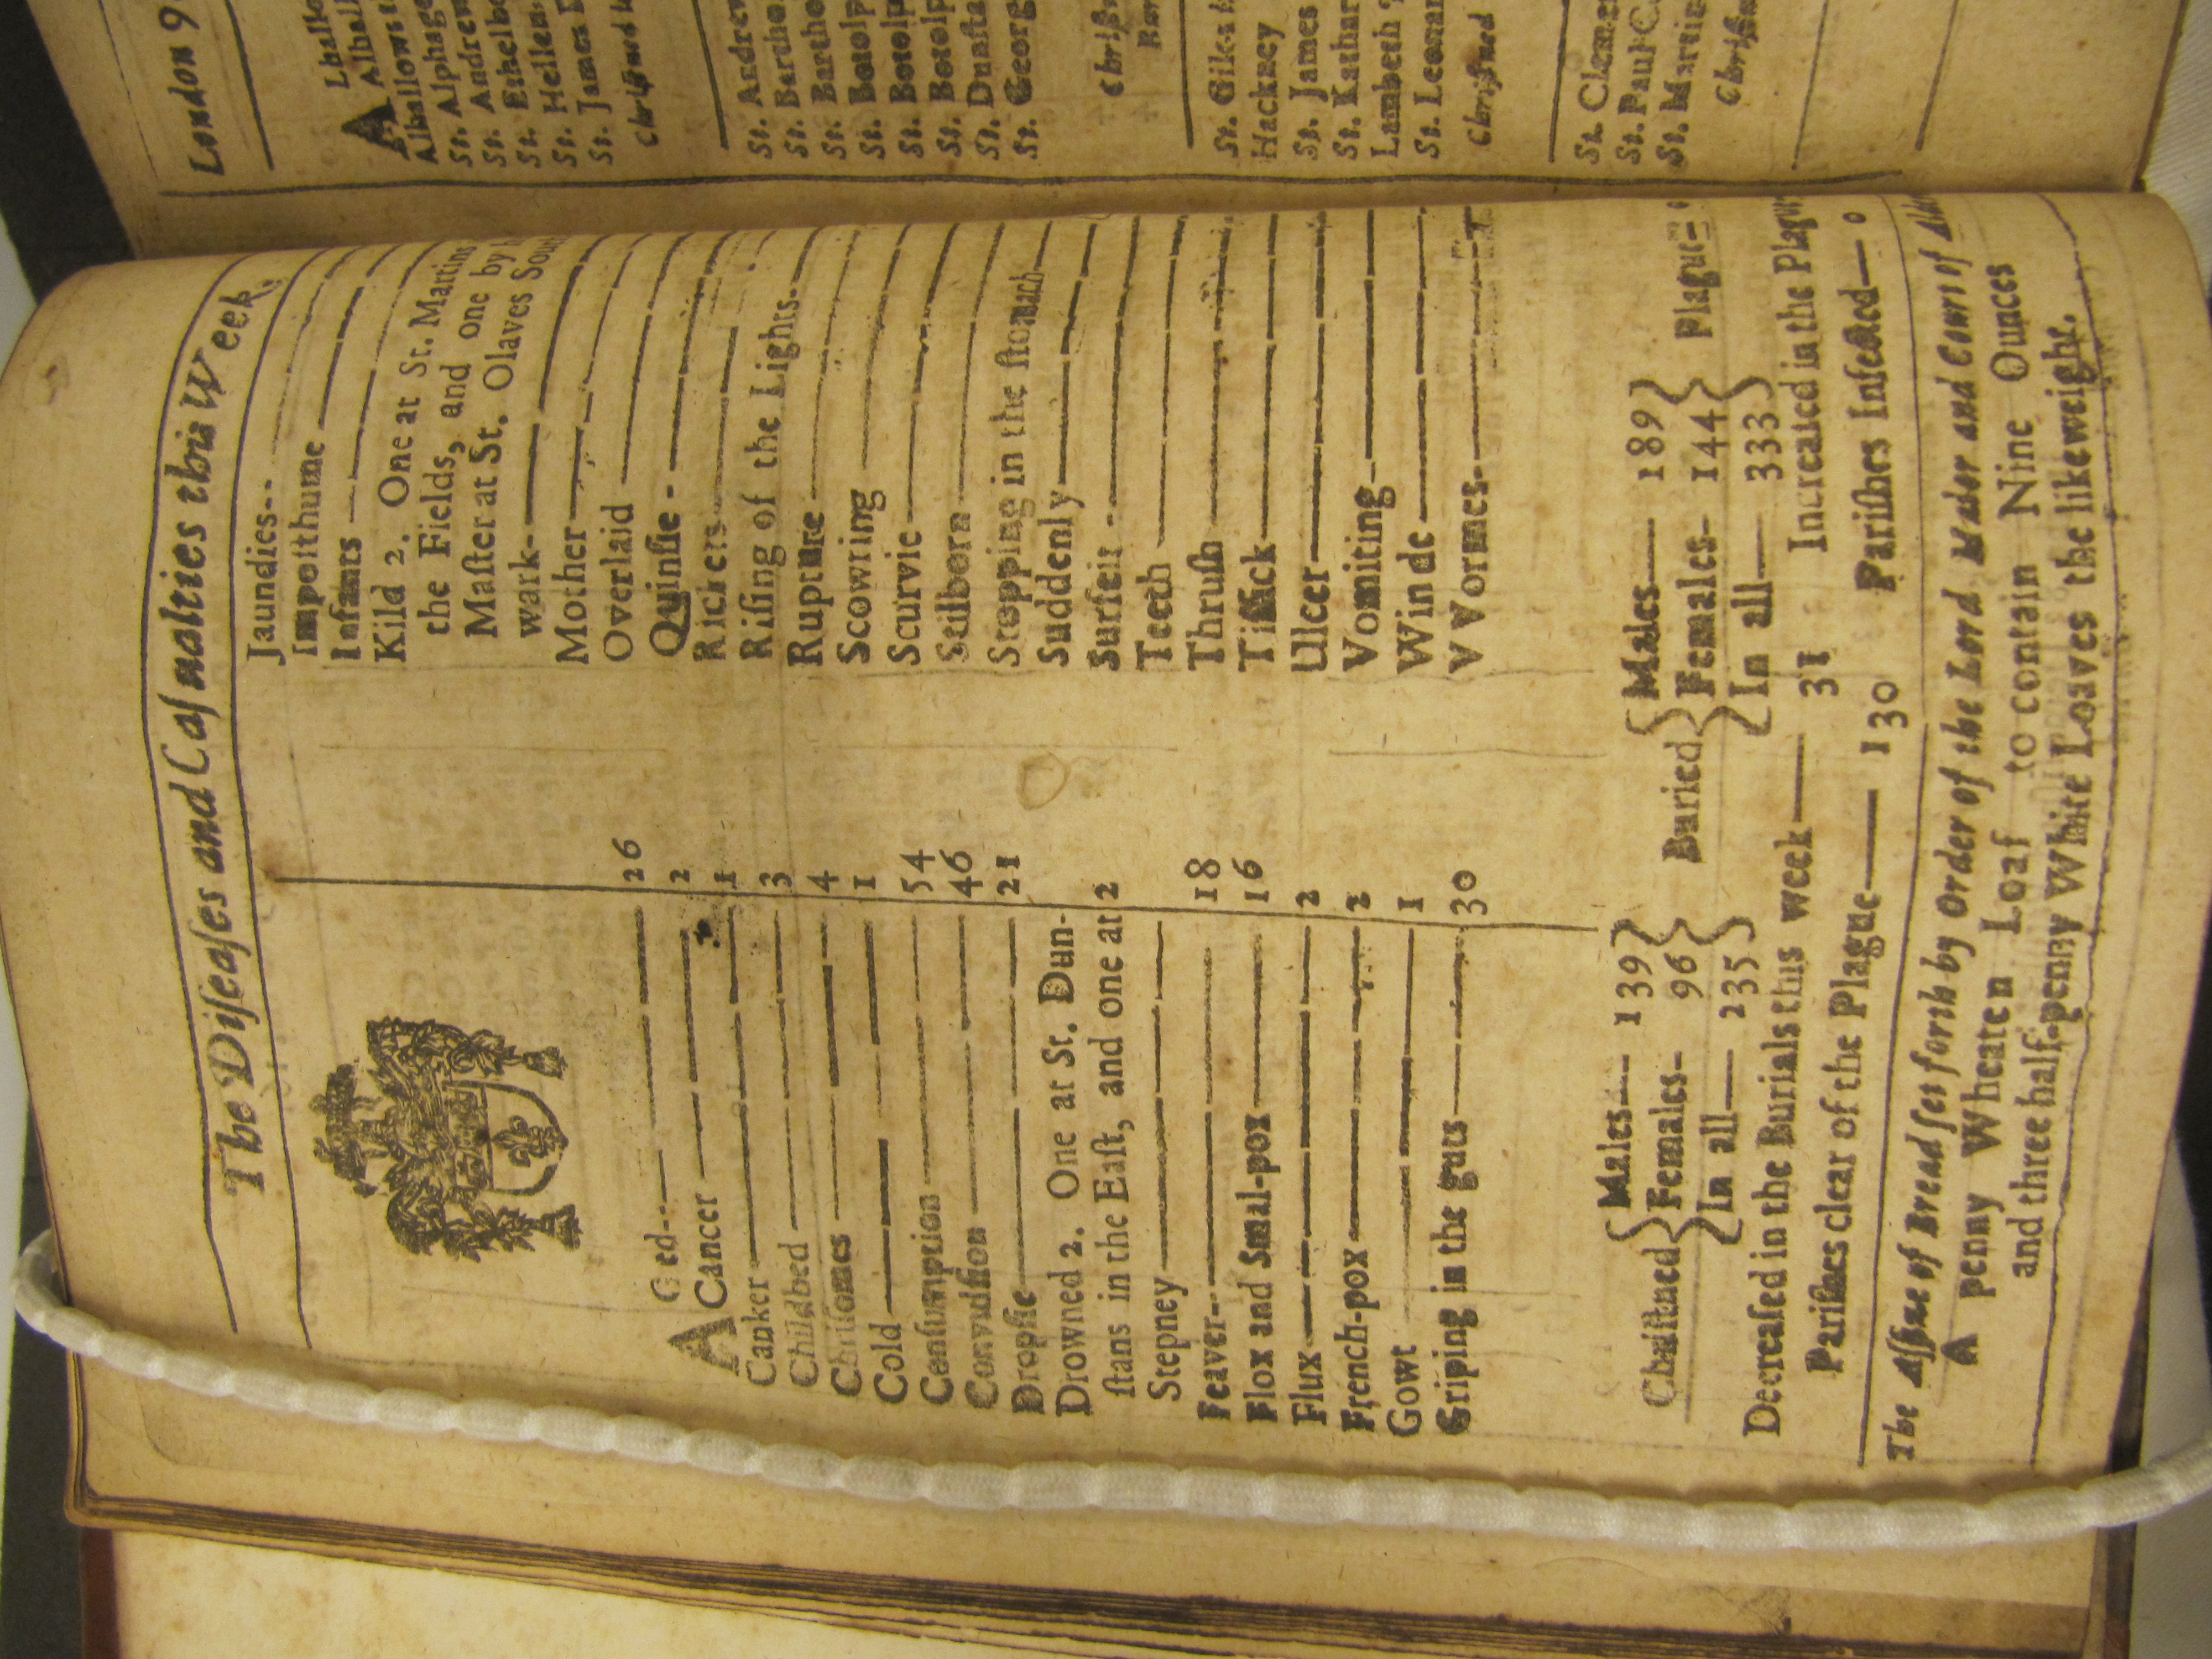 The Diseaſes and Caſualties this Week.
AGed--- 26
Cancer 2
Canker 1
Childbed 3
Chriſomes 4
Cold 1
Conſumption 54
Convulſion 46
Dropſie 21
Drowned 2. One at St. Dun-
ſtans in the Eaſt, and one at 2
Stepney
Feaver 18
Flox and Smal-pox 16
Flux 2
French-pox 2
Gowt 1
Griping in the guts 30
Jaundies
Impoſthume
Infants
Kild 2. One at St. Martins
the Fields, and one by
Maſter at St. Olaves
wark
Mother
Overlaid
Quinſie
Rickets
Riſing of the Lights
Rupture
Scowring
Scurvie
Stilborn
Stopping in the ſtomach
Suddenly
Surfeit
Teeth
Thruſh
Tiſſick
Ulcer
Vomiting
Winde
VVormes
Chriſtned { Males 139
Females 96
In all 235 }
Buried { Males 189
Females 144
In all 333 } Plague 0
Decreaſed in the Burials this week 31 Increaſed in the Plague
Pariſhes clear of the Plague 130 Pariſhes Infected 0
The Aſſize of Bread ſet forth by Order of the Lord Maior and Court of
A penny Wheaten Loaf to contain Nine Ounces
and three half-penny White Loaves the like weight.
London 9
ALhallo
Alhall
Alhallows
St. Alphage
St. Andrew
St. Ethelb
St. Hellen
St. James
Chriſtned
St. Andrew
St. Bartho
St. Bartho
St. Botolp
St. Botolp
St. Botolp
St. Dunſta
St. Georg
Chriſt
St. Giles
Hackney
St. James
St. Kathar
Lambeth
St. Leonar
Chriſtned
St. Cleme
St. Paul C
St. Martin
Chriſtn